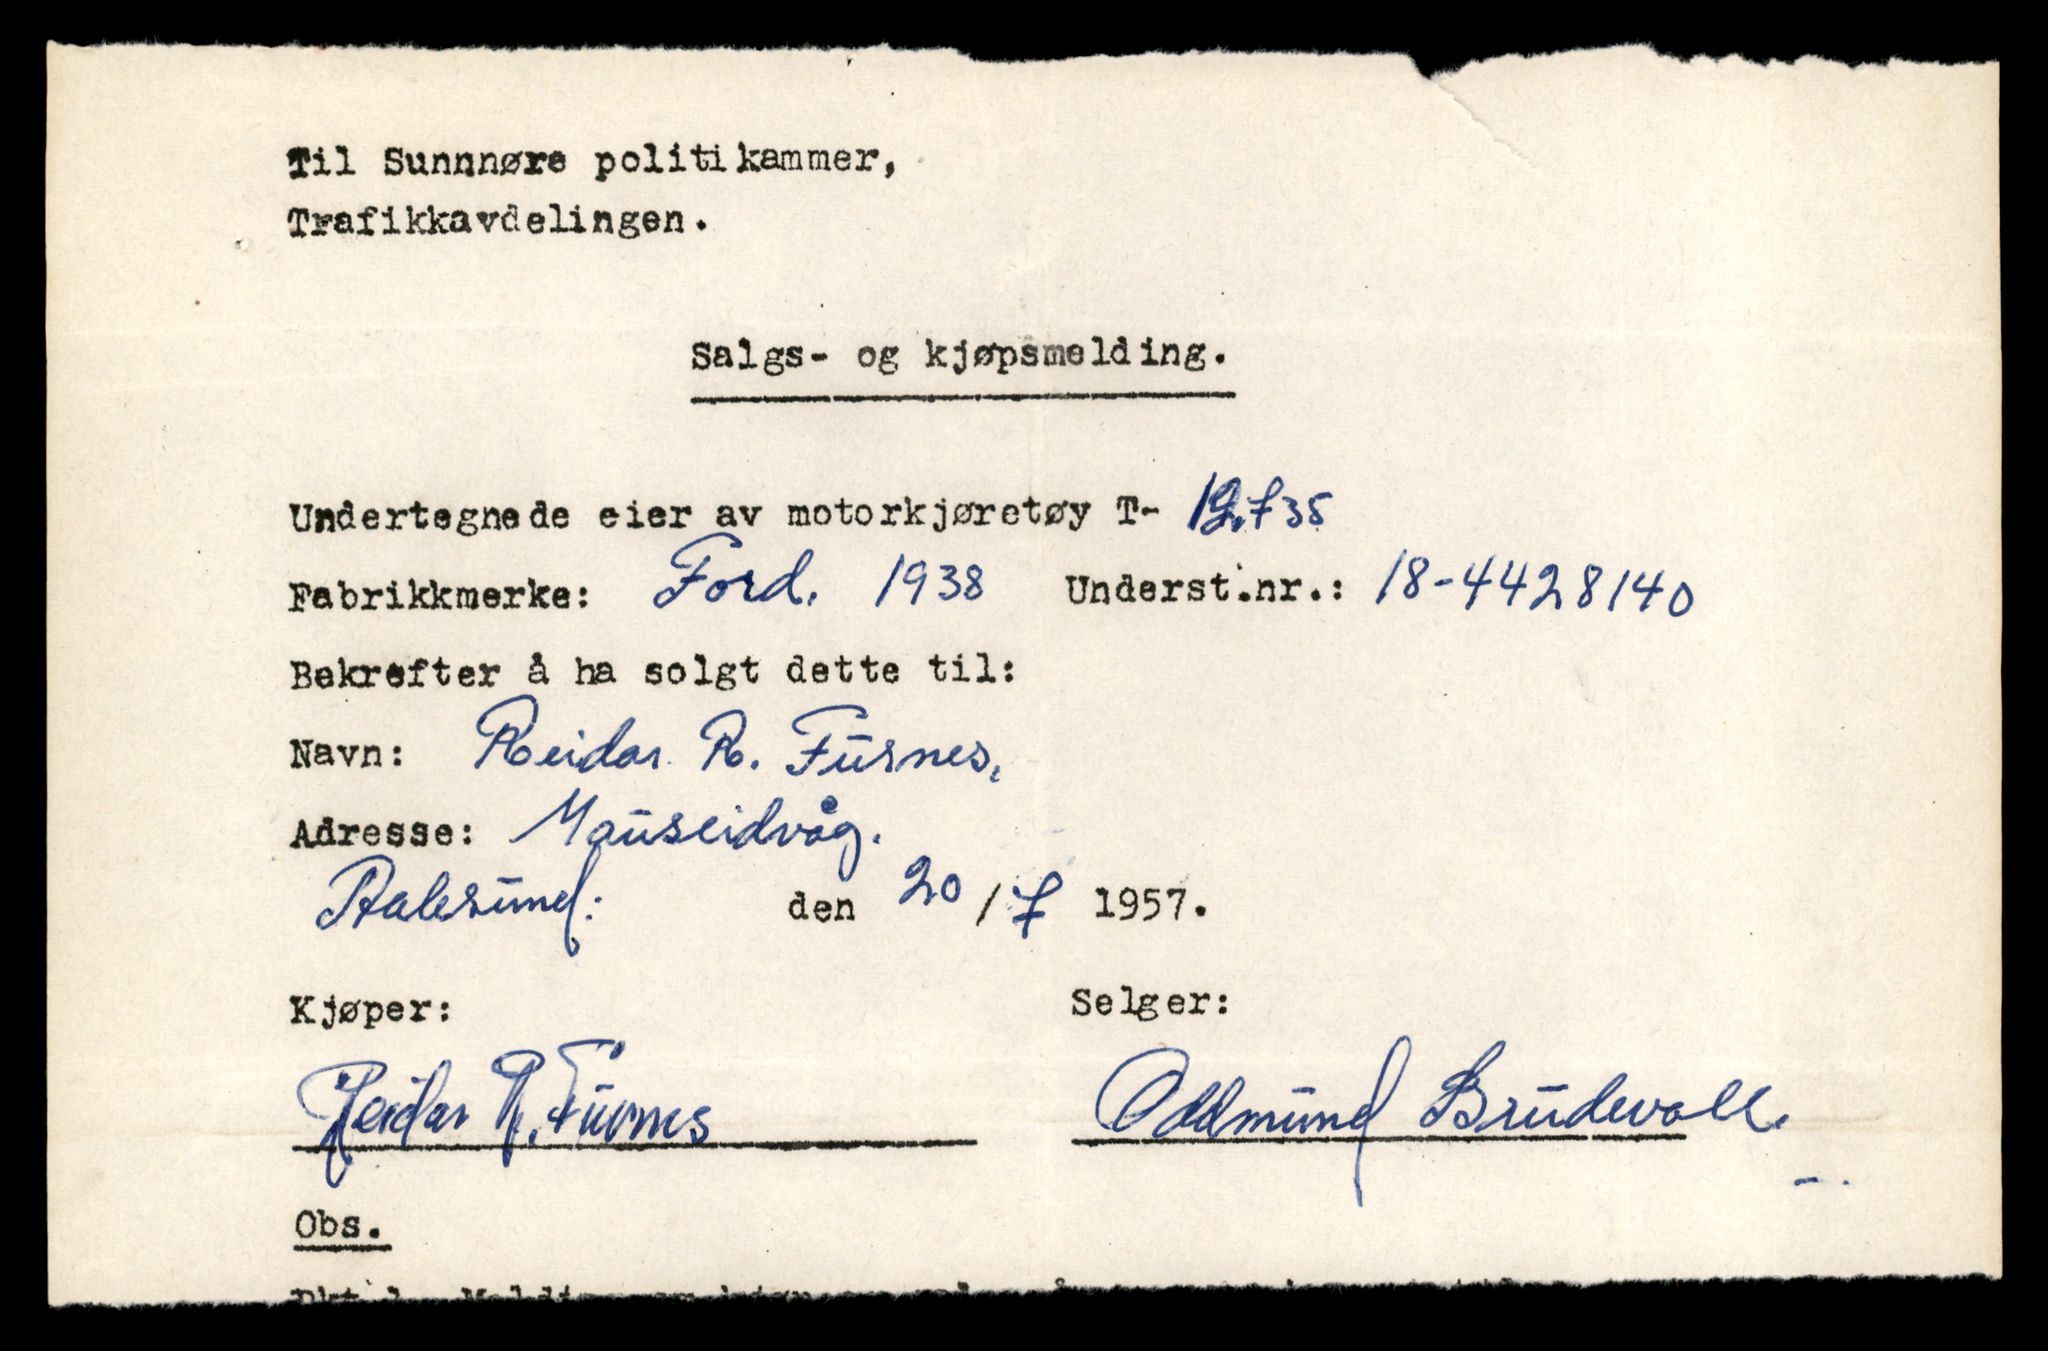 Til Sunnnøre politikammer,
Trafikkavdelingen.
Salgs- og kjøpsmelding.
Undertegnede eier av motorkjøretøy T- 12.735
Fabrikkmerke: Ford. 1938 Underst.nr.: 18-4428140
Bekrefter å ha solgt dette til:
Navn: Reidar R. Furnes.
Adresse: Mauseidvåg.
Aalesund: den 20/7 1957.
Kjøper: Selger:
Reidar R. Furnes Oddmund Brudevoll.
Obs.